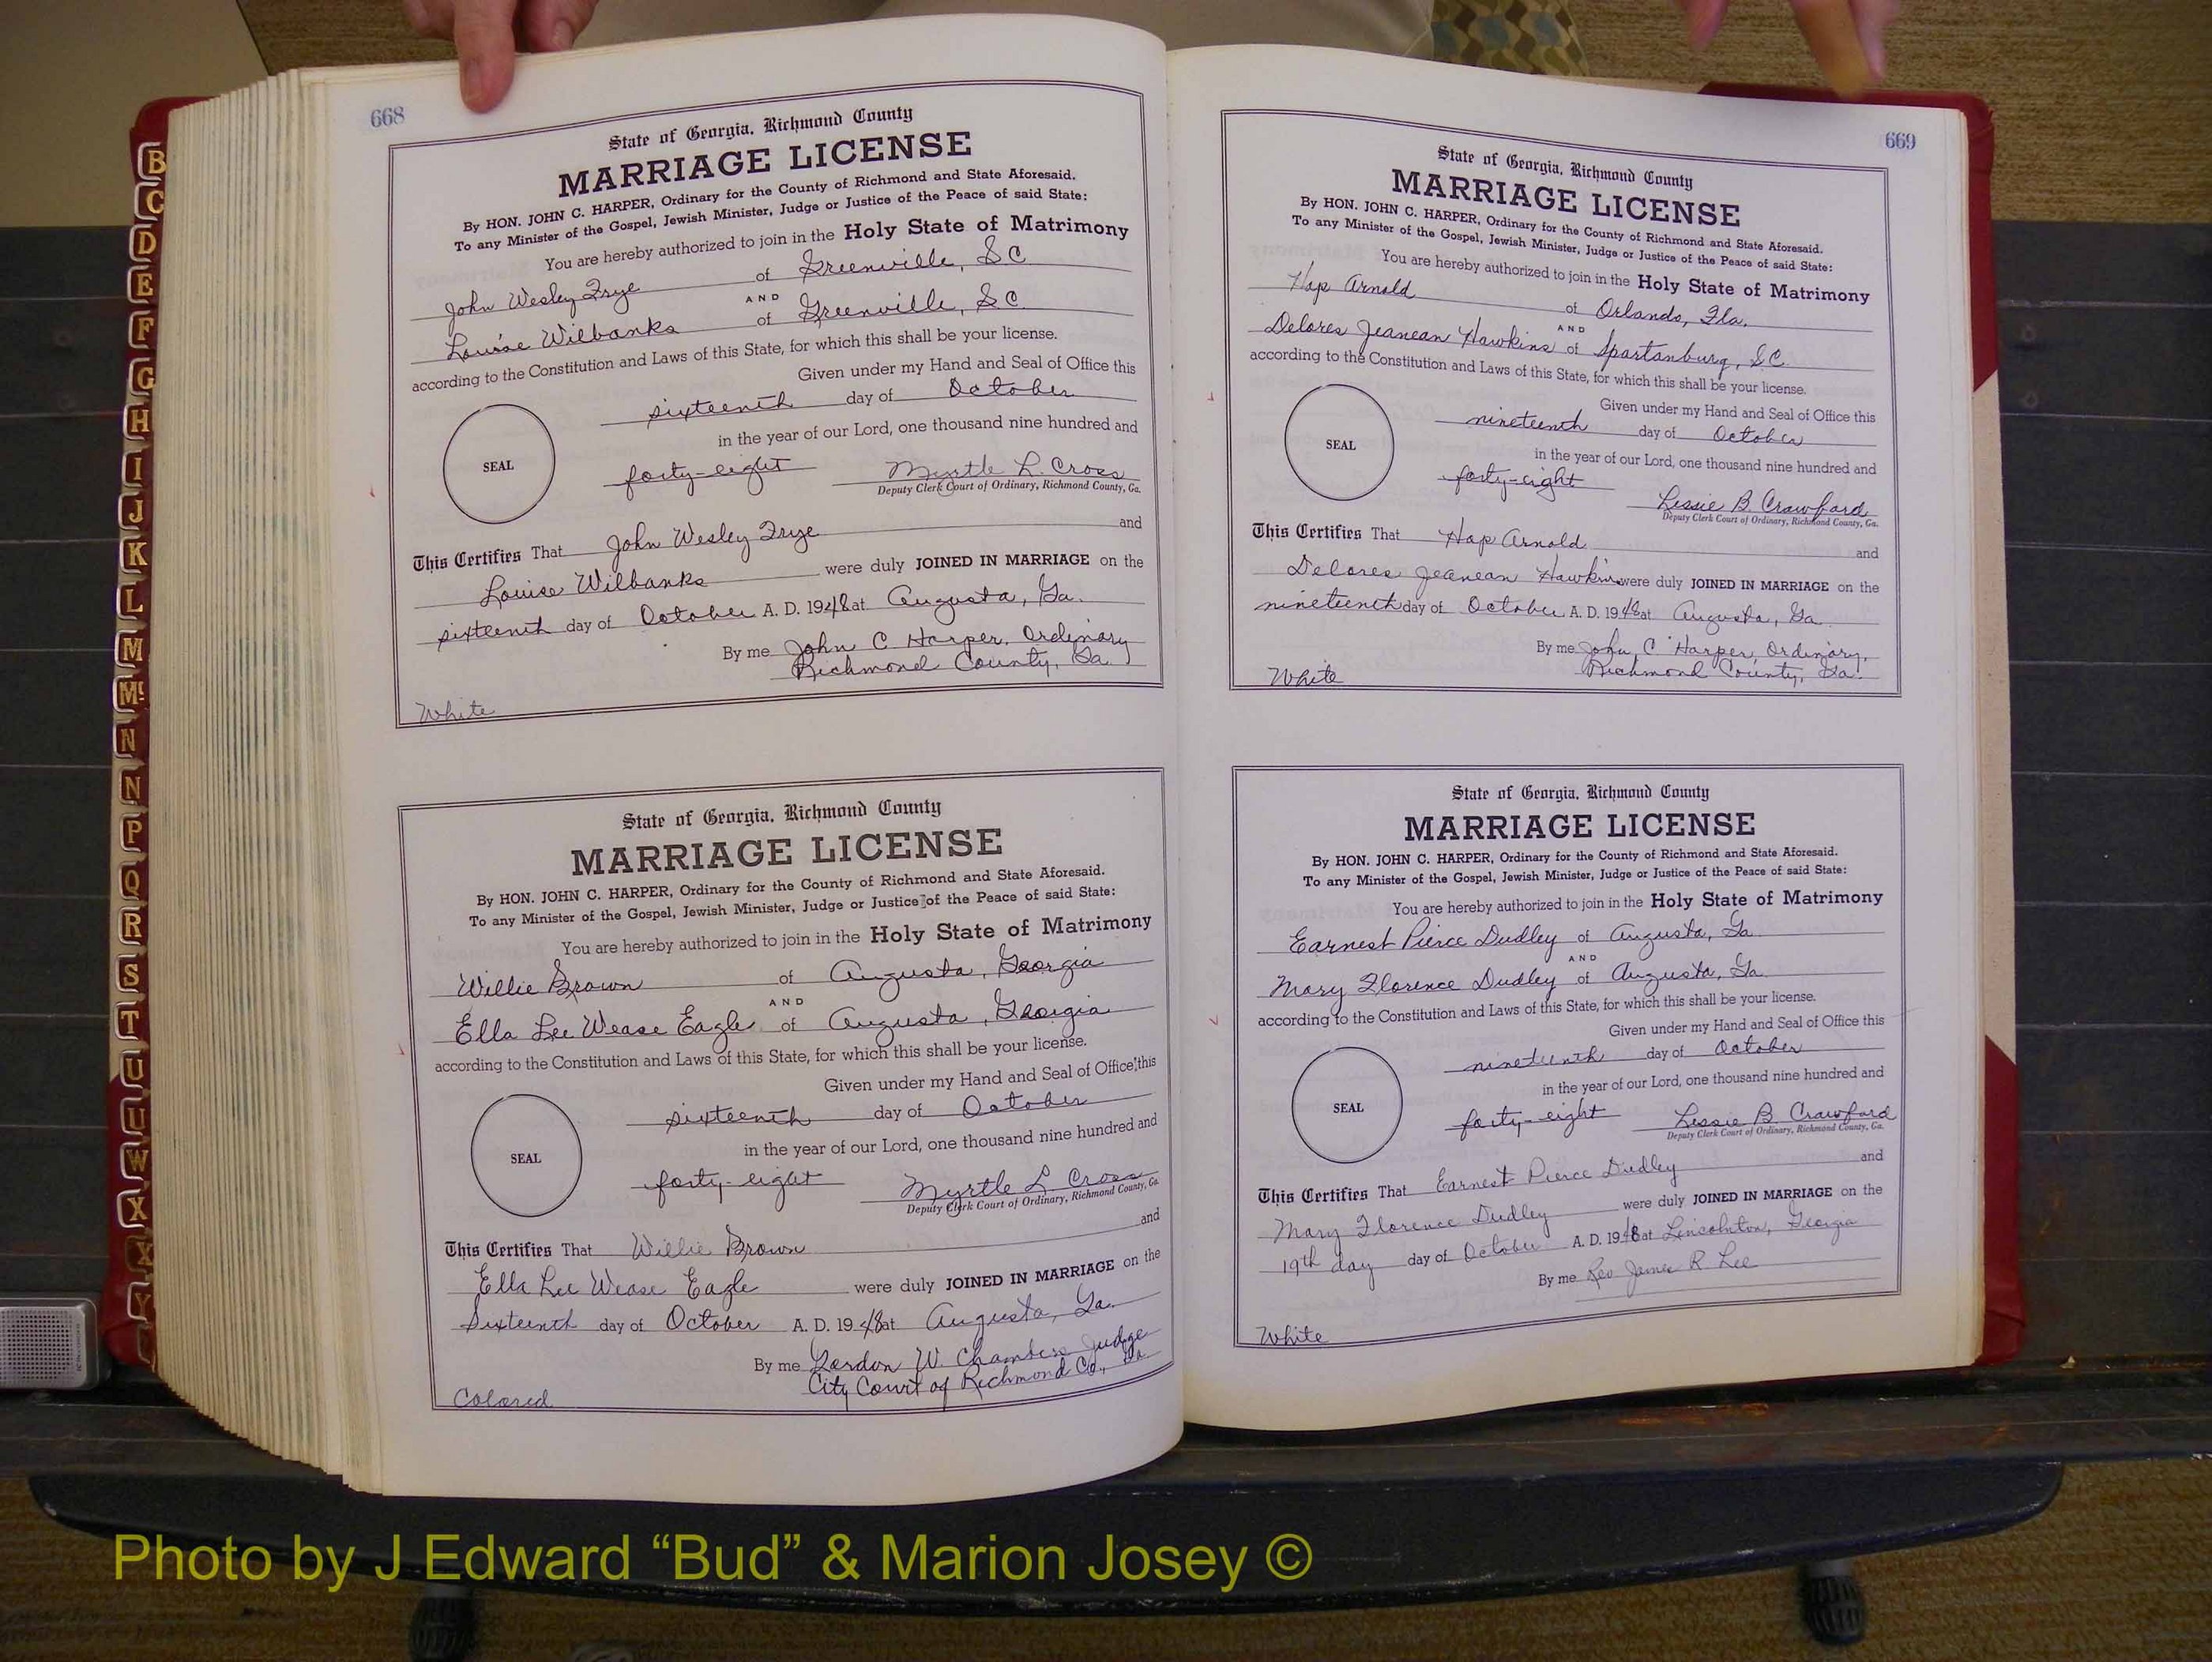 668
State of Georgia, Richmond County
MARRIAGE LICENSE
By HON. JOHN C. HARPER, Ordinary for the County of Richmond and State Aforesaid.
To any Minister of the Gospel, Jewish Minister, Judge or Justice of the Peace of said State:
You are hereby authorized to join in the Holy State of Matrimony
John Wesley Frye of Greenville, SC
AND
Louise Wilbanks of Greenville, SC
according to the Constitution and Laws of this State, for which this shall be your license.
Given under my Hand and Seal of Office this
sixteenth day of October
in the year of our Lord, one thousand nine hundred and
SEAL
forty-eight Myrtle L. Cross
Deputy Clerk Court of Ordinary, Richmond County, Ga.
This Certifies That John Wesley Frye and
Louise Wilbanks were duly JOINED IN MARRIAGE on the
sixteenth day of October A. D. 1948 at Augusta, Ga.
By me John C Harper, Ordinary
Richmond County, Ga
White
State of Georgia, Richmond County
MARRIAGE LICENSE
By HON. JOHN C. HARPER, Ordinary for the County of Richmond and State Aforesaid.
To any Minister of the Gospel, Jewish Minister, Judge or Justice of the Peace of said State:
You are hereby authorized to join in the Holy State of Matrimony
Willie Brown of Augusta, Georgia
AND
Ella Lee Wease Eagle of Augusta, Georgia
according to the Constitution and Laws of this State, for which this shall be your license.
Given under my Hand and Seal of Office this
sixteenth day of October
in the year of our Lord, one thousand nine hundred and
SEAL
forty-eight Myrtle L Cross
Deputy Clerk Court of Ordinary, Richmond County, Ga.
This Certifies That Willie Brown and
Ella Lee Wease Eagle were duly JOINED IN MARRIAGE on the
Sixteenth day of October A. D. 1948 at Augusta, Ga.
By me Gordon W. Chambers Judge
City Court of Richmond Co., Ga
Colored
669
State of Georgia, Richmond County
MARRIAGE LICENSE
By HON. JOHN C. HARPER, Ordinary for the County of Richmond and State Aforesaid.
To any Minister of the Gospel, Jewish Minister, Judge or Justice of the Peace of said State:
You are hereby authorized to join in the Holy State of Matrimony
Hap Arnold of Orlando, Fla.
AND
Delores Jeanean Hawkins of Spartanburg, SC.
according to the Constitution and Laws of this State, for which this shall be your license.
Given under my Hand and Seal of Office this
nineteenth day of October
in the year of our Lord, one thousand nine hundred and
SEAL
forty-eight Lessie B. Crawford
Deputy Clerk Court of Ordinary, Richmond County, Ga.
This Certifies That Hap Arnold and
Delores Jeanean Hawkins were duly JOINED IN MARRIAGE on the
nineteenth day of October A. D. 1948 at Augusta, Ga
By me John C Harper, Ordinary,
Richmond County, Ga.
White
State of Georgia, Richmond County
MARRIAGE LICENSE
By HON. JOHN C. HARPER, Ordinary for the County of Richmond and State Aforesaid.
To any Minister of the Gospel, Jewish Minister, Judge or Justice of the Peace of said State:
You are hereby authorized to join in the Holy State of Matrimony
Earnest Pierce Dudley of Augusta, Ga
AND
Mary Florence Dudley of Augusta, Ga
according to the Constitution and Laws of this State, for which this shall be your license.
Given under my Hand and Seal of Office this
nineteenth day of October
in the year of our Lord, one thousand nine hundred and
SEAL
forty-eight Lessie B. Crawford
Deputy Clerk Court of Ordinary, Richmond County, Ga.
This Certifies That Earnest Pierce Dudley and
Mary Florence Dudley were duly JOINED IN MARRIAGE on the
19th day day of October A. D. 1948 at Lincolnton, Georgia
By me Rev James R Lee
White
B
C
D
E
F
G
H
I
J
K
L
M
Mc
N
N
P
Q
R
S
T
U
U
W
X
X
Y
Photo by J Edward “Bud” & Marion Josey ©